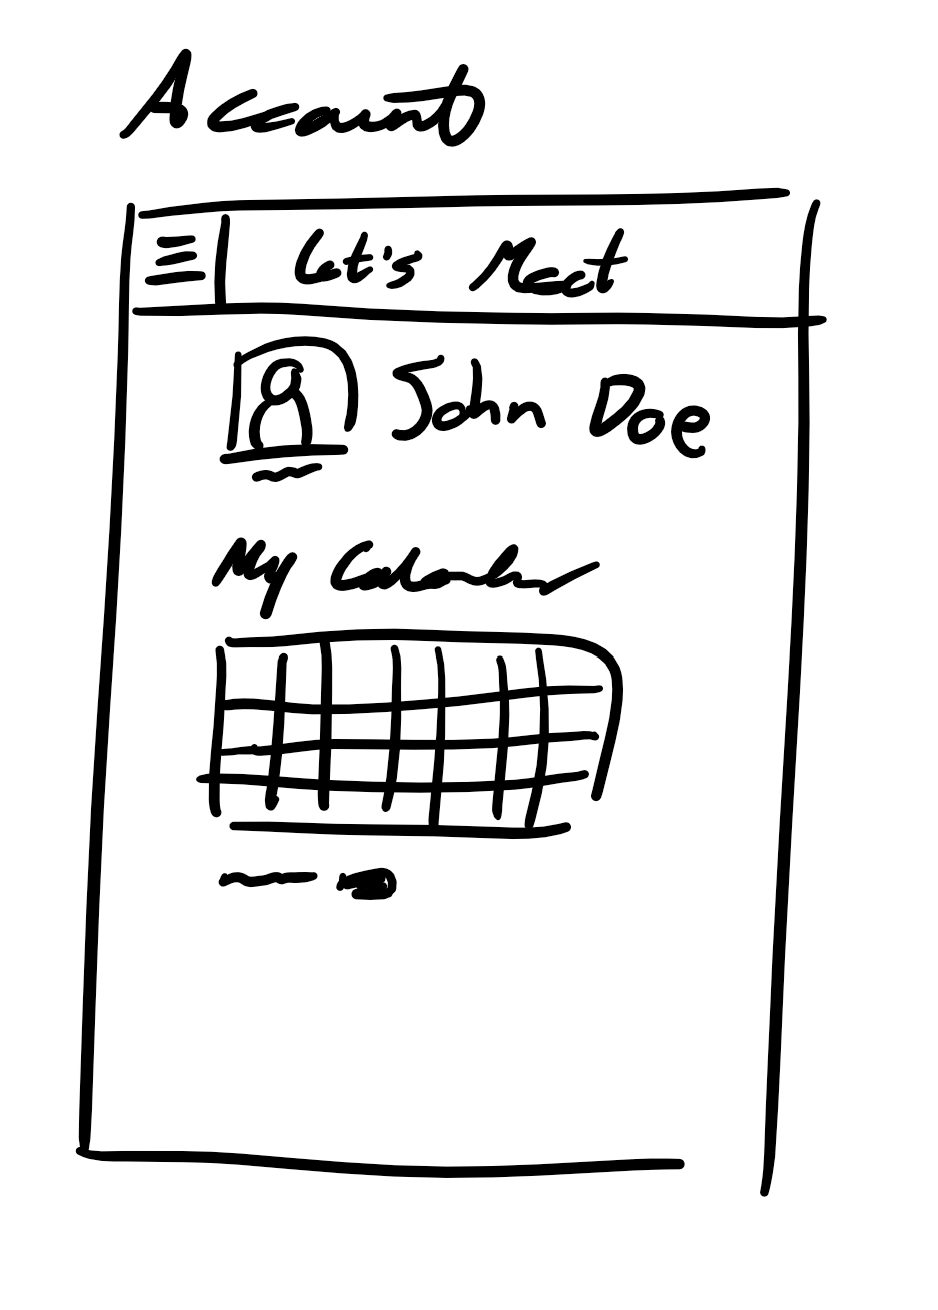 Account
Let's Meet
John Doe
My Calendar